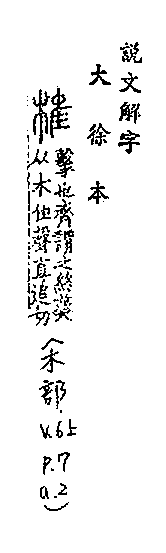 説文解字
大徐本
椎 擊也齊謂之終葵
从木隹聲直追切
(木部.
v.6上
p.7
a.2)